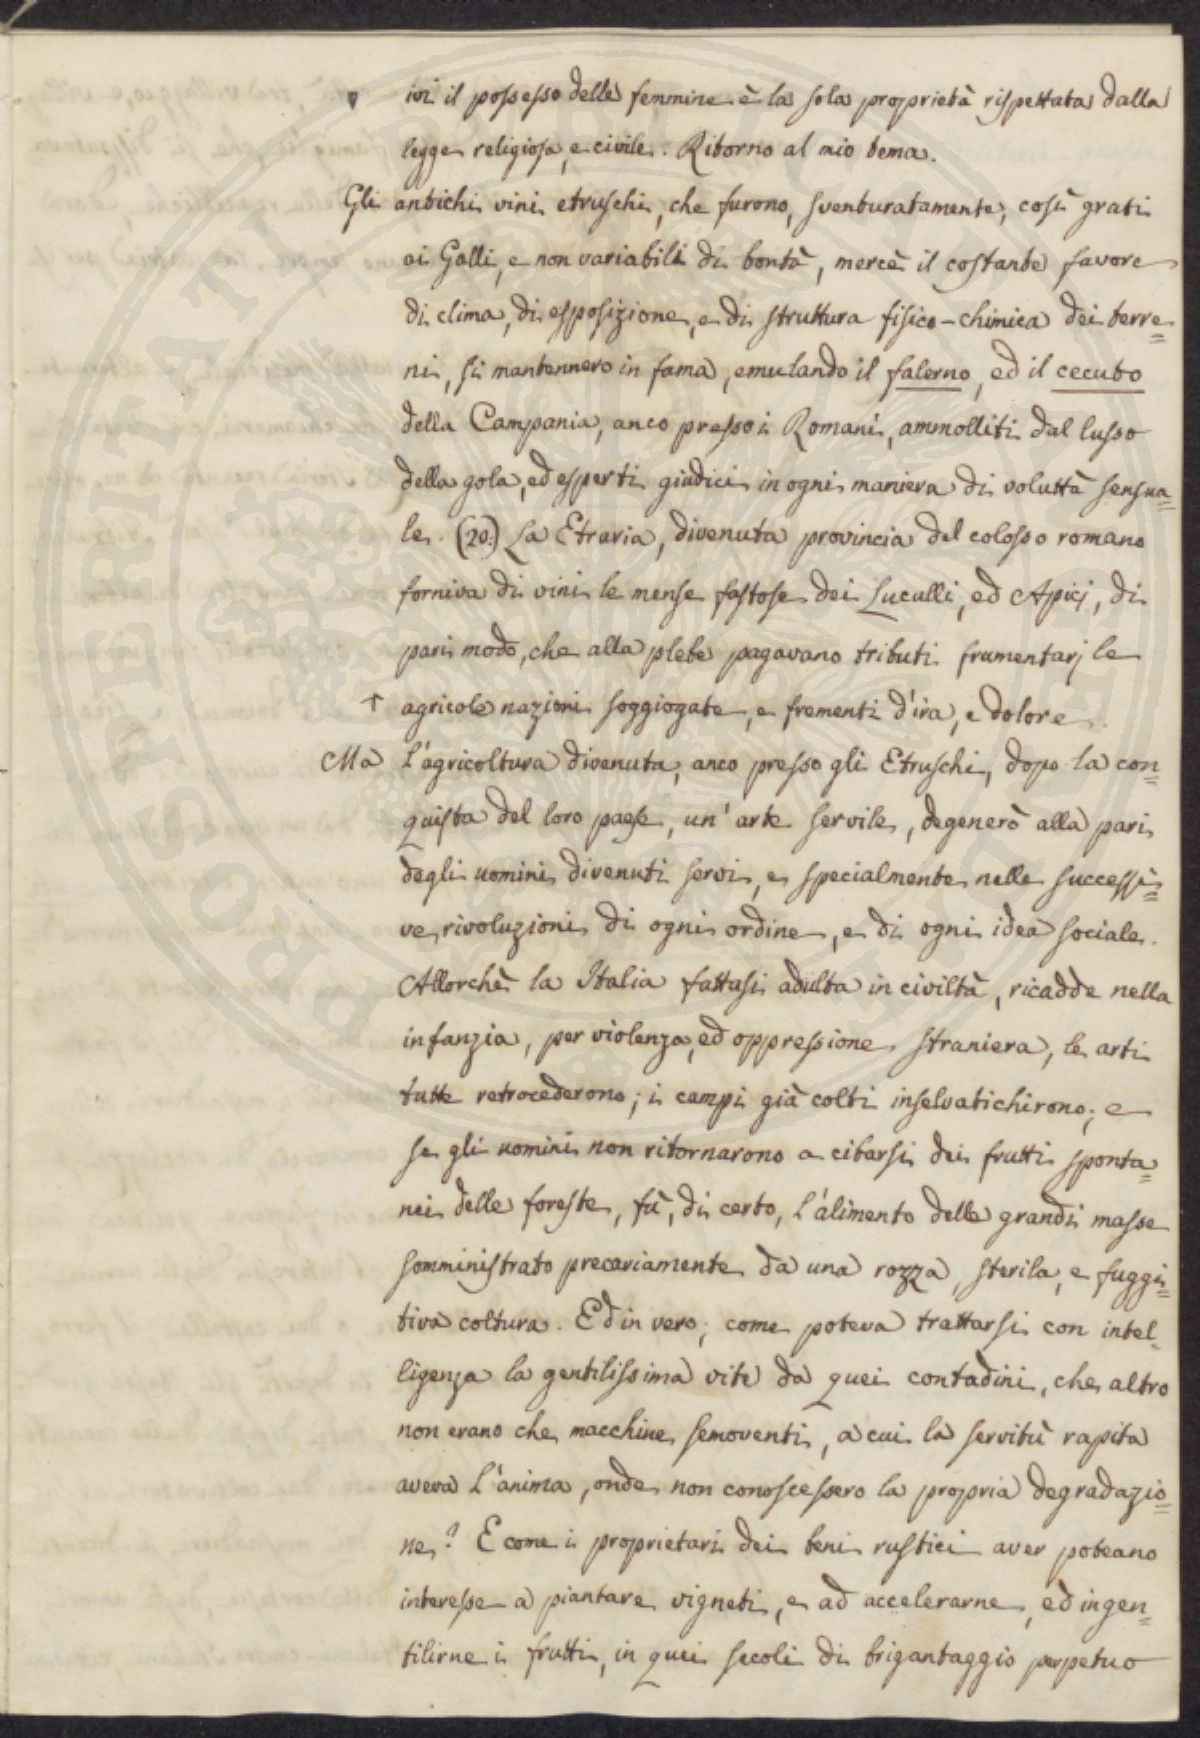 ivi il possesso delle femmine è la sola proprietà rispettata dalla
legge religiosa, e civile. Ritorno al mio tema.
Gli antichi vini etruschi, che furono, sventuratamente, così grati
ai Galli, e non variabili di bontà, mercè il costante favore
di clima, di esposizione, e di struttura fisico-chimica dei terre=
ni, si mantennero in fama, emulando il falerno, ed il cecubo
della Campania, anco presso i Romani, ammolliti dal lusso
della gola, ed esperti giudici in ogni maniera di voluttà sensua=
le. (20.) La Etruria, divenuta provincia del colosso romano
forniva di vini le mense fastose dei Luculli, ed Apicj, di
pari modo, che alla plebe pagavano tributi frumentarj le
↑ agricole nazioni soggiogate, e frementi d'ira, e dolore.
Ma L'agricoltura divenuta, anco presso gli Etruschi, dopo la con=
quista del loro paese, un' arte servile, degenerò alla pari
degli uomini divenuti servi, e specialmente nelle successi=
ve rivoluzioni di ogni ordine, e di ogni idea sociale.
Allorchè la Italia fattasi adulta in civiltà, ricadde nella
infanzia, per violenza, ed oppressione straniera, le arti
tutte retrocederono; i campi già colti inselvatichirono; e
se gli uomini non ritornarono a cibarsi dei frutti sponta=
nei delle foreste, fù, di certo, l'alimento delle grandi masse
somministrato precariamente da una rozza, sterila, e fuggi=
tiva coltura. Ed in vero; come poteva trattarsi con intel=
ligenza la gentilissima vite da quei contadini, che altro
non erano che macchine semoventi, a cui la servitù rapita
aveva L'anima, onde non conoscessero la propria degradazio=
ne? E come i proprietari dei beni rustici aver poteano
interesse a piantare vigneti, e ad accelerarne, ed ingen=
tilirne i frutti, in quei secoli di brigantaggio perpetuo
PROSPERITATI PUBLICAE